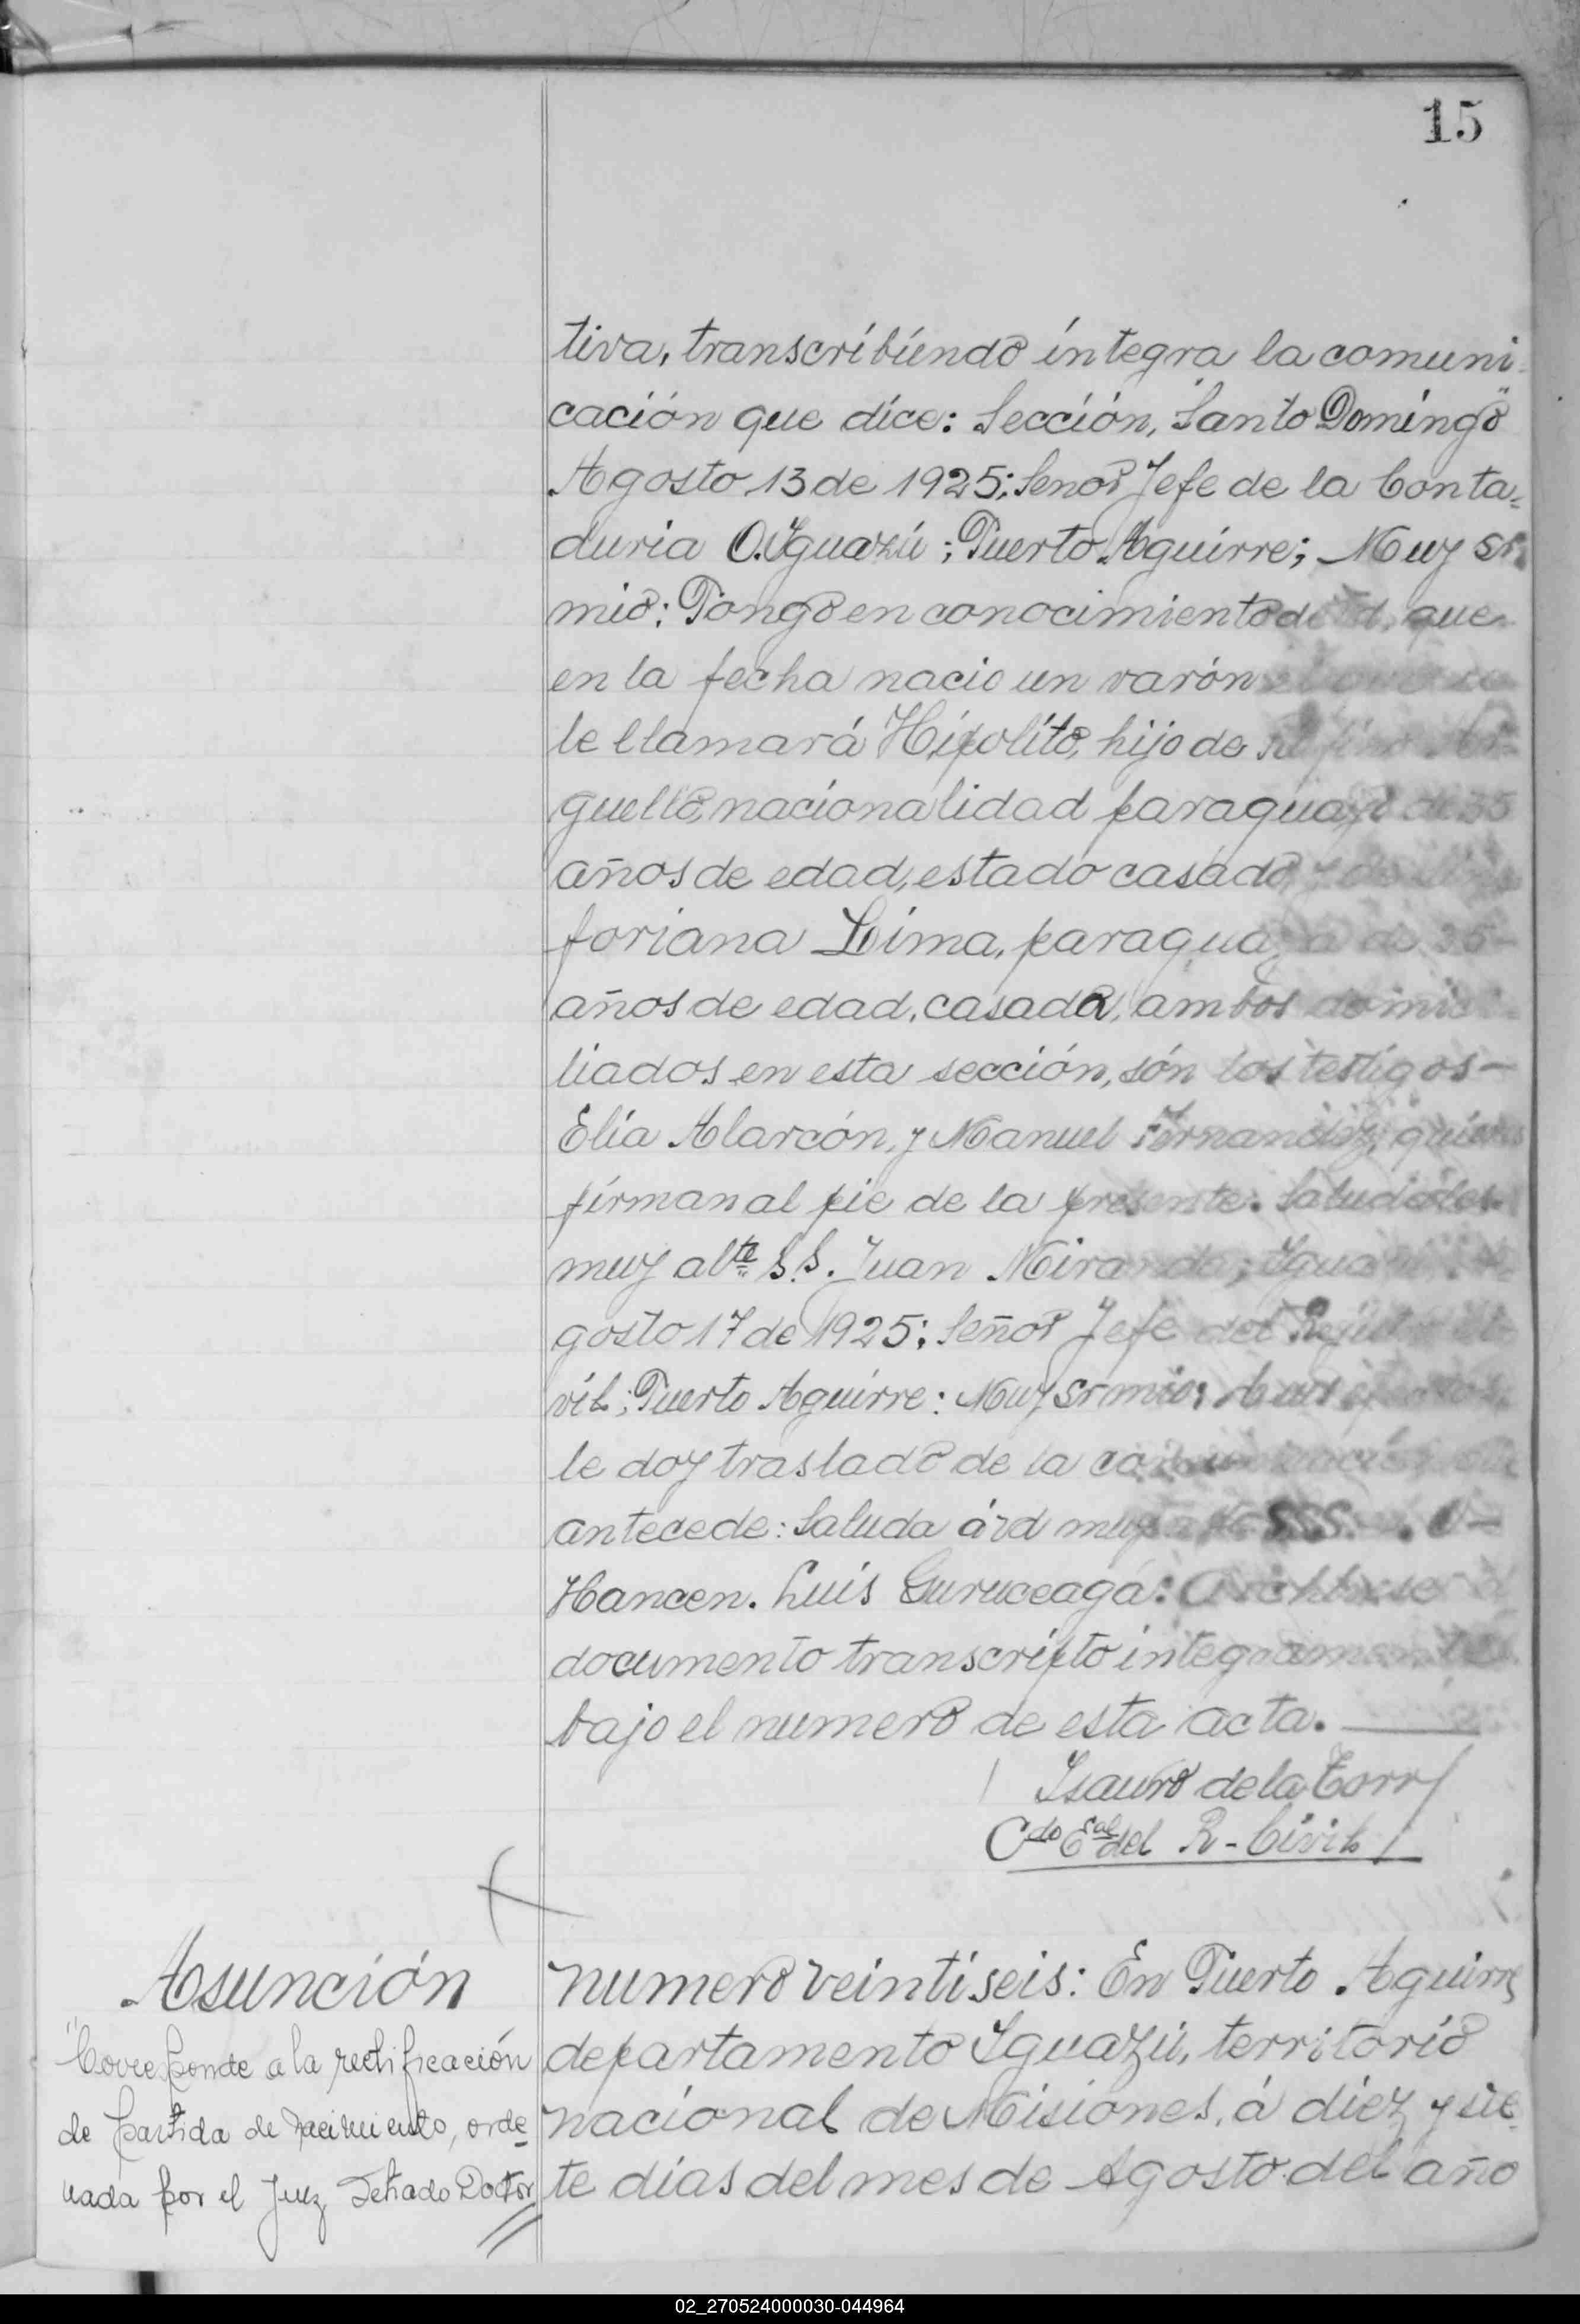 15
tiva, transcribiendo íntegra la comuni-
cación que dice: Sección, Santo Domingo
Agosto 13 de 1925; Senor Jefe de la Conta=
duria O. Yguazú; Puerto Aguirre; Muy Sr.
mio: Pongo en conocimiento de Ud. que
en la fecha nacio un varón
le llamará Hipólito, hijo de
guello, nacionalidad paraguayo de 35
años de edad, estado casado, y de
foriana Lima, paraguaya de
años de edad, casada, ambos domici-
liados en esta sección, són los testigos—
Elia Alarcón, y Manuel Fernandez, quienes
firman al pie de la presente. Saludoles
muy atte S.S. Juan Miranda; Iguazú, A-
gosto 17 de 1925; Señor Jefe del Registro Ci-
vil; Puerto Aguirre: Muy Sr mio: A sus efectos
le doy traslado de la comunicación que
antecede: Saluda á Ud muy SSS.
Hancen. Luis Guruceagá: Archívese
documento transcripto integramente
bajo el numero de esta acta.
Isauro de la Torre
Cdo Eal del R-Civil
Asunción
"Corresponde a la rectificación
de partida de nacimiento, orde-
nada por el Juez Letrado Doctor
numero veintiseis: En Puerto Aguirre
departamento Yguazú, territorio
nacional de Misiones, á diez y sie-
te dias del mes de Agosto del año
02_270524000030-044964